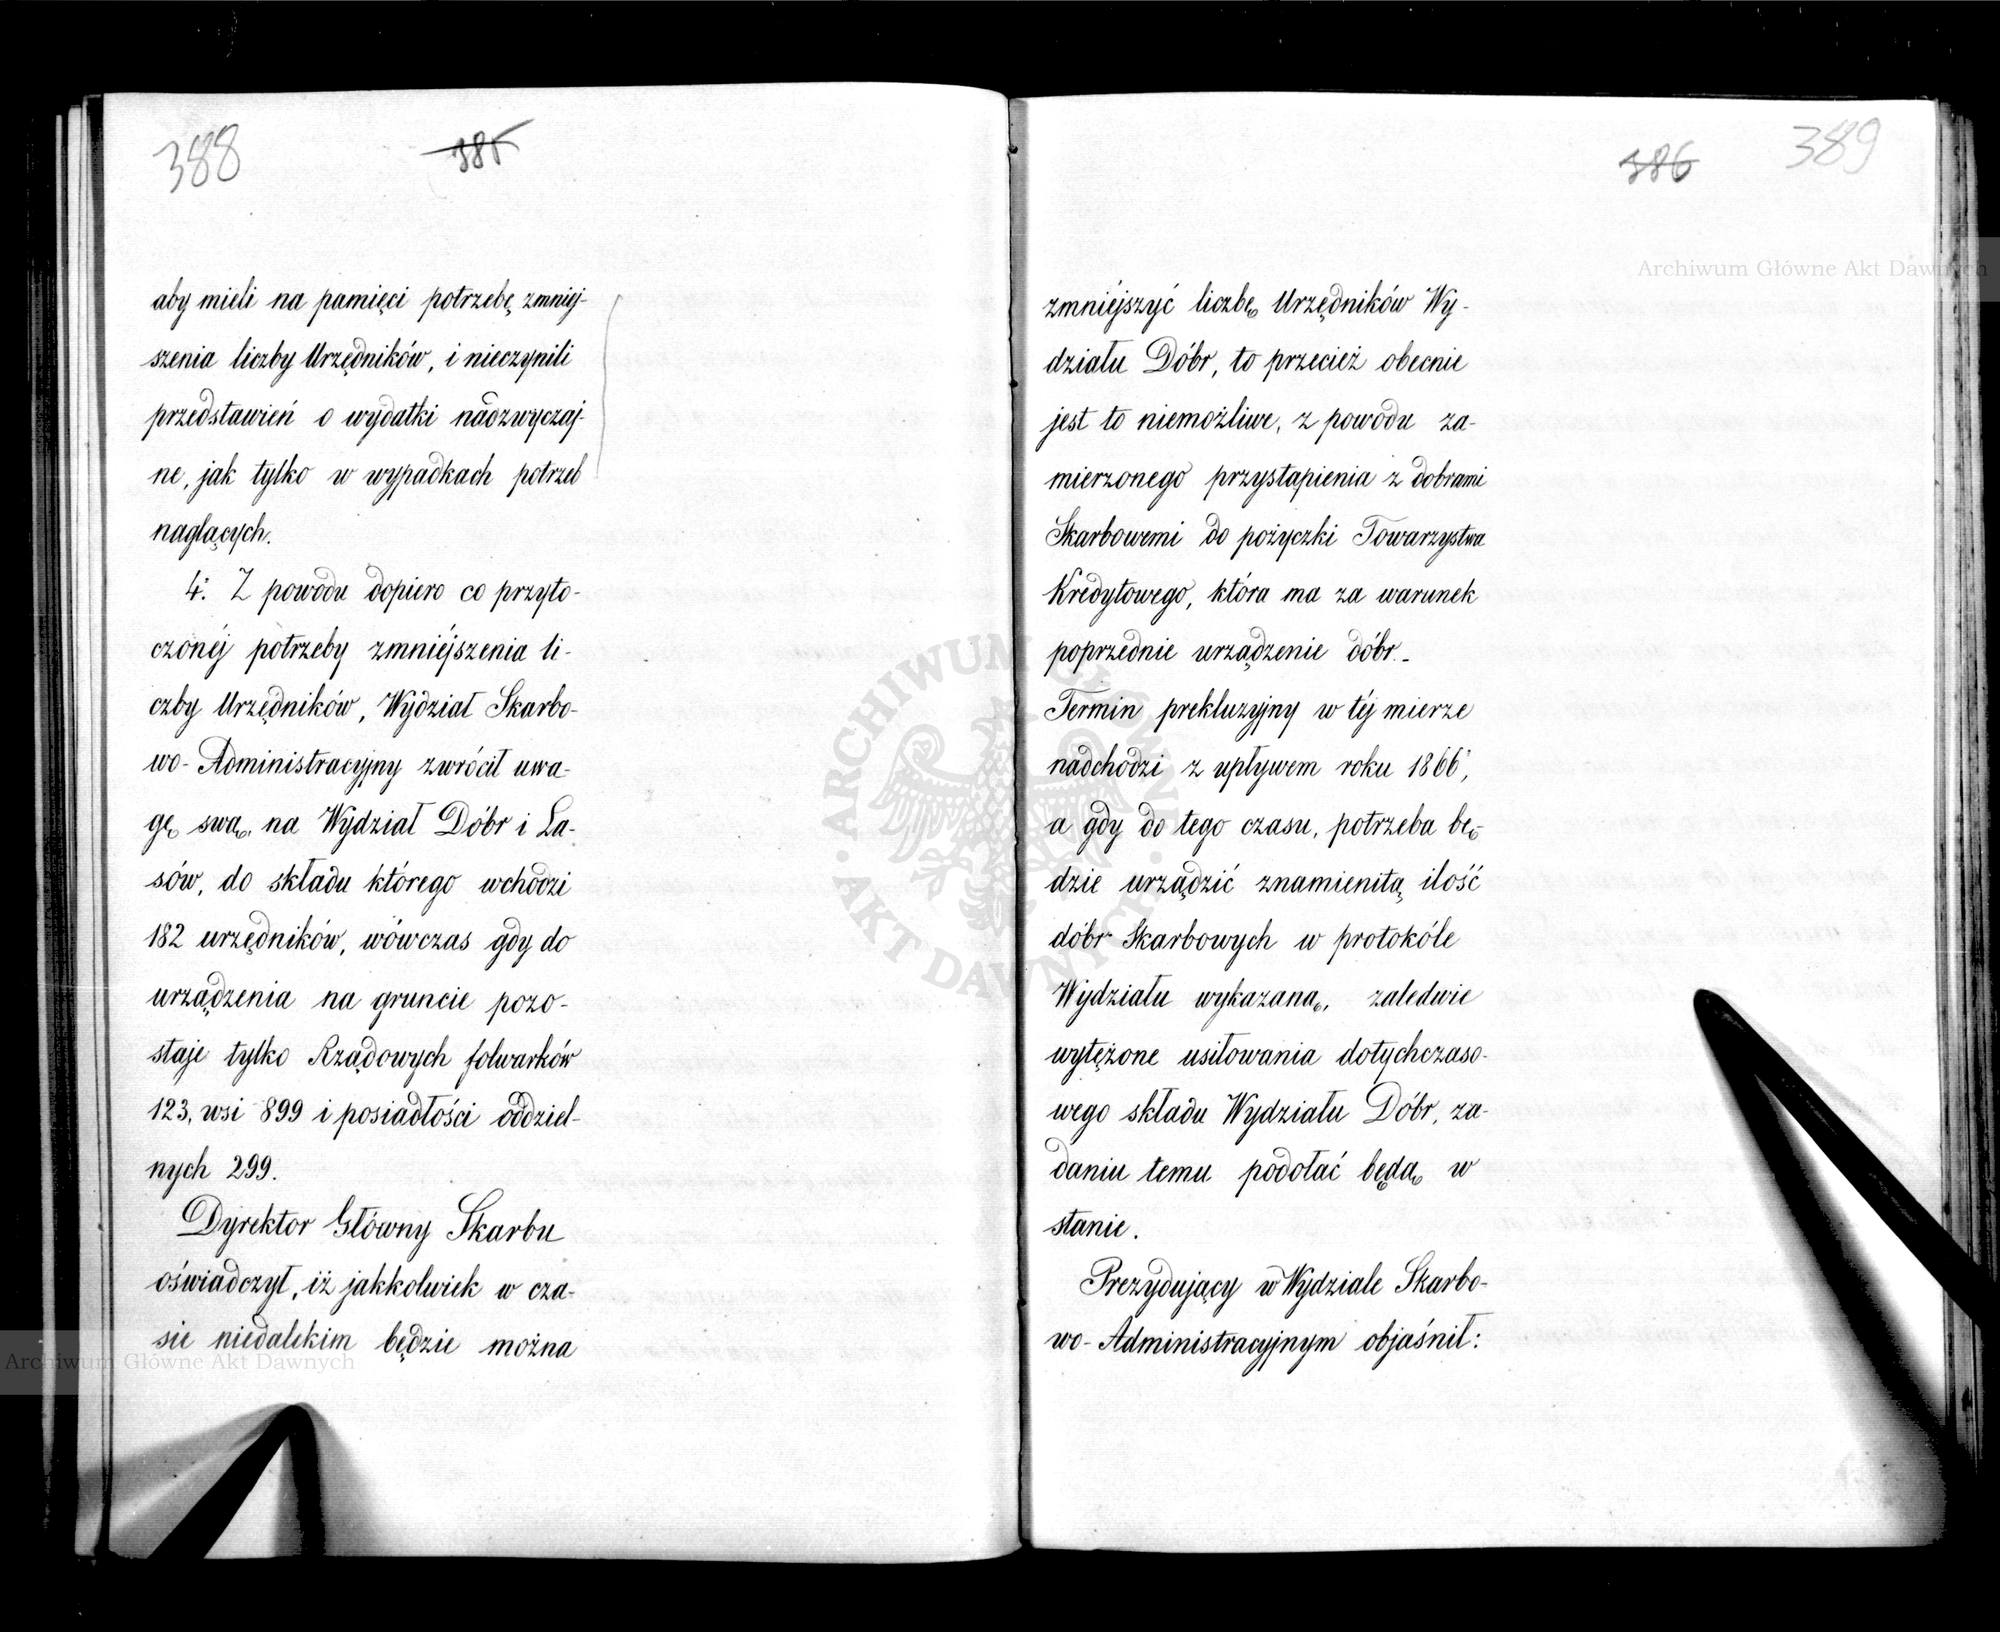 388
385
aby mieli na pamięci potrzebę zmniej-
szenia liczby Urzędników, i nieczynili
przedstawień o wydatki nadzwyczaj-
ne, jak tylko w wypadkach potrzeb
naglących.
4. Z powodu dopiero co przyto-
czonéj potrzeby zmniéjszenia li-
czby Urzędników, Wydział Skarbo-
wo-Administracyjny zwrócił uwa-
gę swą, na Wydział Dóbr i La-
sów, do składu którego wchodzi
182 urzędników, wówczas gdy do
urządzenia na gruncie pozo-
staje tylko Rządowych folwarków
123, wsi 899 i posiadłości oddziel-
nych 299.
Dyrektor Główny Skarbu
oświadczył, iż jakkolwiek w cza-
sie niedalekim będzie można
386
389
zmniéjszyć liczbę Urzędników Wy-
działu Dóbr, to przecież obecnie
jest to niemożliwe, z powodu za-
mierzonego przystąpienia z dobrami
Skarbowemi do pożyczki Towarzystwa
Kredytowego, która ma za warunek
poprzednie urządzenie dóbr.-
Termin prekluzyjny w téj mierze
nadchodzi z upływem roku 1866,
a gdy do tego czasu, potrzeba bę-
dzie urządzić znamienitą ilość
dóbr Skarbowych w protokóle
Wydziału wykazaną, zaledwie
wytężone usiłowania dotychczaso-
wego składu Wydziału Dóbr, za-
daniu temu podołać będą w
stanie.
Prezydujący w Wydziale Skarbo-
wo-Administracyjnym objaśnił:
Archiwum Główne Akt Dawnych
Archiwum Główne Akt Dawnych
ARCHIWUM GŁÓWNE AKT DAWNYCH